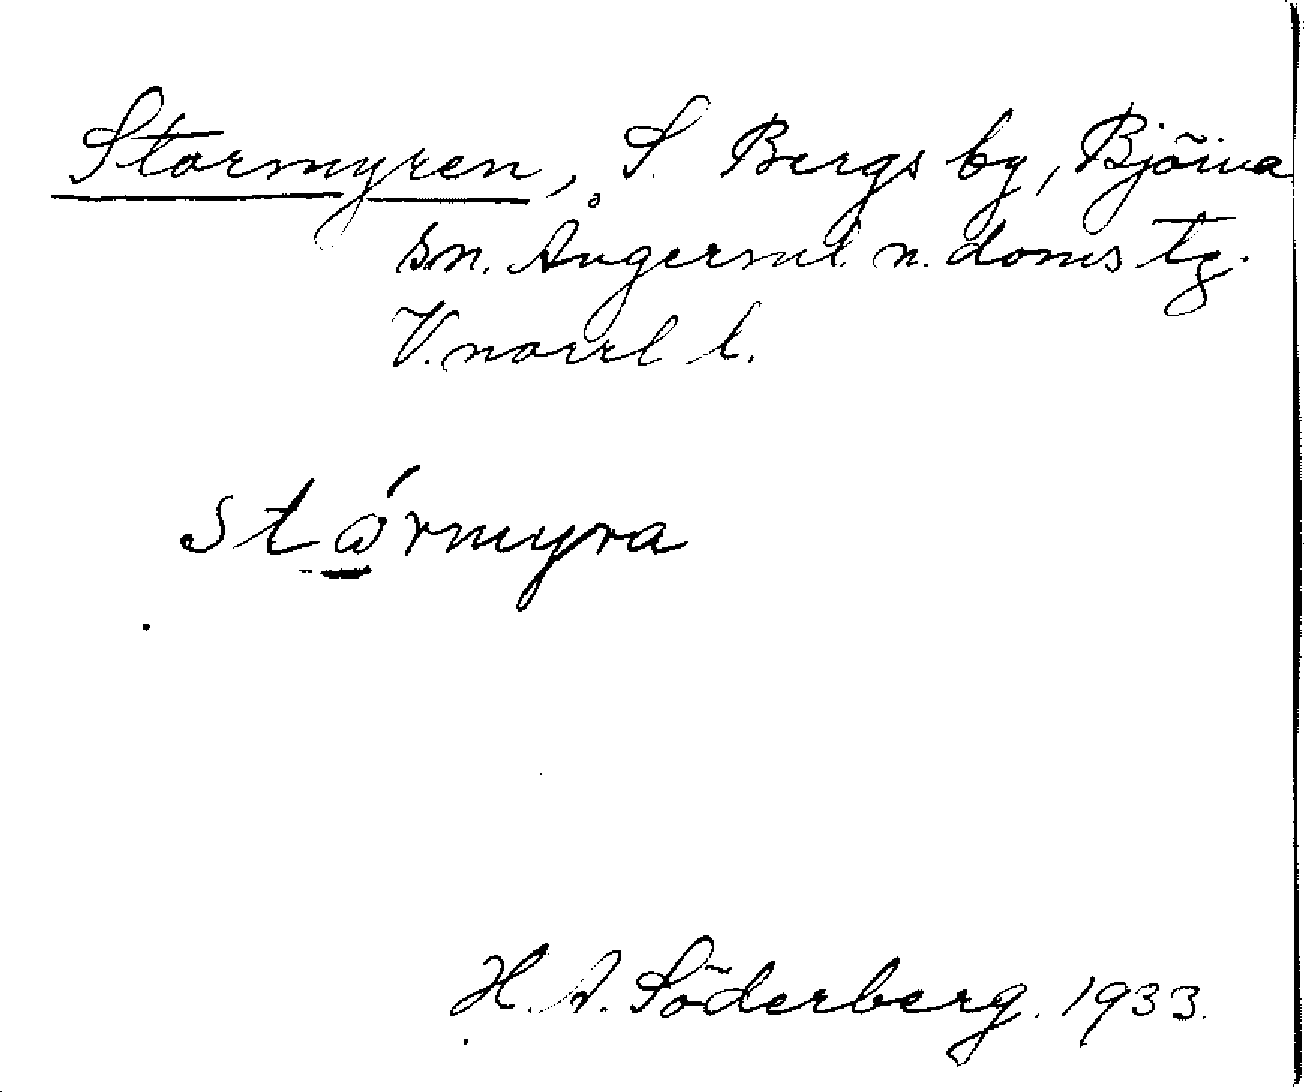 Stormyren, S. Bergs by, Björna
sn. Ångerml. n. doms tg.
V. norrl l.
stårmyra
H. A. Söderberg. 1933.